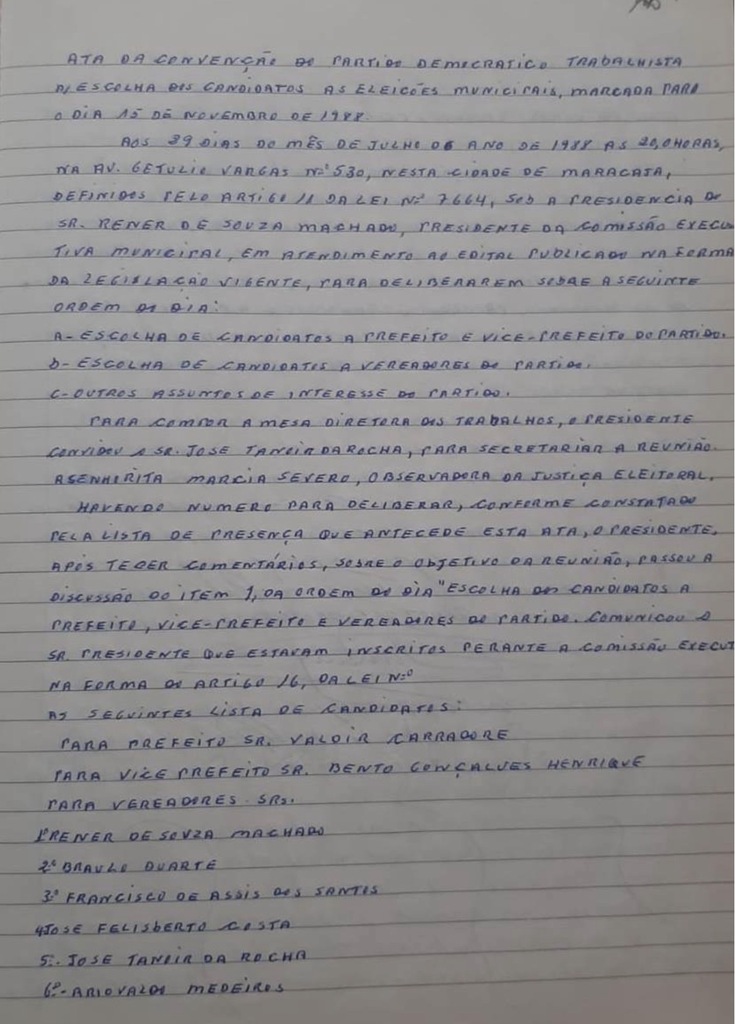 ATA DA CONVENÇÃO DO PARTIDO DEMOCRATICO TRABALHISTA
P/ ESCOLHA DOS CANDIDATOS AS ELEICÕES MUNICIPAIS, MARCADA PARA
O DIA 15 DE NOVEMBRO DE 1988.
AOS 29 DIAS DO MÊS DE JULHO DO ANO DE 1988 AS 20,0HORAS,
NA AV. GETULIO VARGAS Nº 530, NESTA CIDADE DE MARACAJA,
DEFINIDOS PELO ARTIGO 11 DA LEI Nº 7664, SOB A PRESIDENCIA DO
SR. RENER DE SOUZA MACHADO, PRESIDENTE DA COMISSÃO EXECU
TIVA MUNICIPAL, EM ATENDIMENTO AO EDITAL PUBLICADO NA FORMA
DA LEGISLAÇÃO VIGENTE, PARA DELIBERAREM SOBRE A SEGUINTE
ORDEM DO DIA:
A- ESCOLHA DE CANDIDATOS A PREFEITO E VICE-PREFEITO DO PARTIDO.
b- ESCOLHA DE CANDIDATOS A VEREADORES DO PARTIDO.
C- OUTROS ASSUNTOS DE INTERESSE DO PARTIDO.
PARA COMPOR A MESA DIRETORA DOS TRABALHOS, O PRESIDENTE
CONVIDOU O SR. JOSE TANOIR DA ROCHA, PARA SECRETARIAR A REUNIÃO.
A SENHIRITA MARCIA SEVERO, OBSERVADORA DA JUSTIÇA ELEITORAL.
HAVENDO NUMERO PARA DELIBERAR, CONFORME CONSTATADO
PELA LISTA DE PRESENÇA QUE ANTECEDE ESTA ATA, O PRESIDENTE,
APÓS TECER COMENTÁRIOS, SOBRE O OBJETIVO DA REUNIÃO, PASSOU A
DISCUSSÃO DO ITEM 1, DA ORDEM DO DIA "ESCOLHA DOS CANDIDATOS A
PREFEITO, VICE-PREFEITO E VEREADORES DO PARTIDO. COMUNICOU O
SR. PRESIDENTE QUE ESTAVAM INSCRITOS PERANTE A COMISSÃO EXECUT
NA FORMA DO ARTIGO 16, DA LEI Nº
AS SEGUINTES LISTA DE CANDIDATOS:
PARA PREFEITO SR. VALDIR CARRADORE
PARA VICE PREFEITO SR. BENTO GONÇALVES HENRIQUE
PARA VEREADORES. SRS.
1º RENER DE SOUZA MACHADO
2º BRAULO DUARTE
3º FRANCISCO DE ASSIS DOS SANTOS
4 JOSE FELISbERTO COSTA
5º- JOSE TANOIR DA ROCHA
6º- ARIOVALDO MEDEIROS